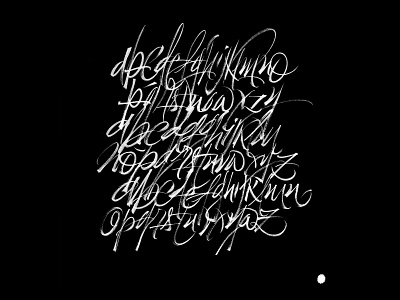 abcdefghijklmno
pqrstuvwxyz
abcdefghijklm
nopqrstuvwxyz
abcdefghijklmn
opqrstuvwxyz